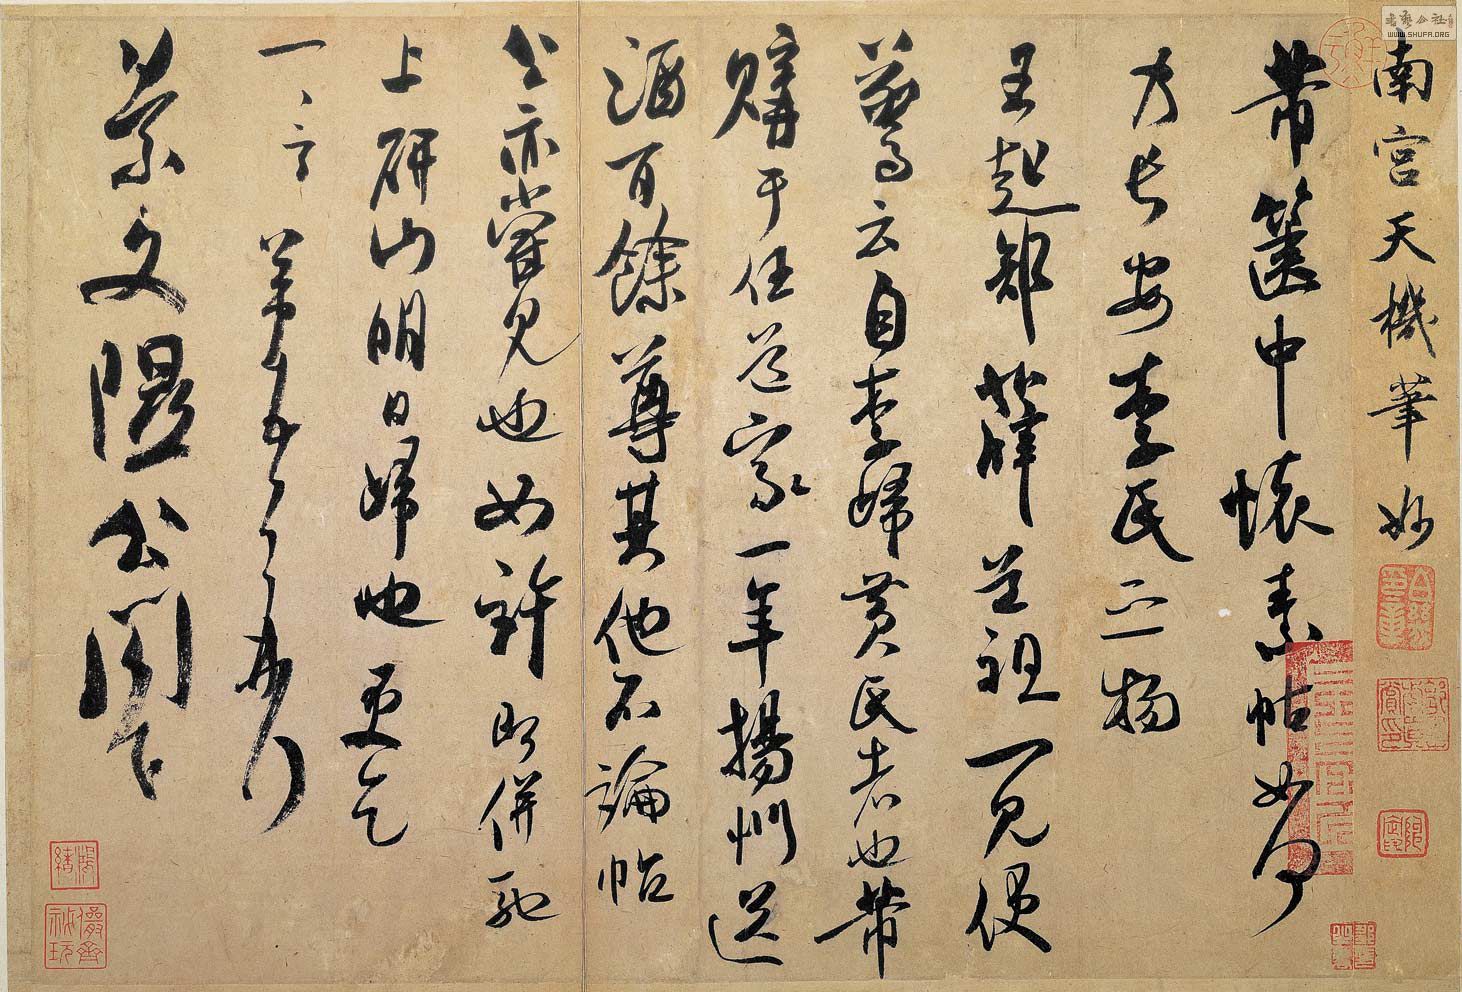 南宮天機筆妙
芾篋中懷素帖如何
乃長安李氏之物
王起部薛道祖一見便
驚云自李歸黃氏者也芾
購于任道家一年揚州送
酒百餘尊其他不論帖
公亦嘗見也如許即併馳
上研山明日歸也更乞
一言芾頓首再拜
景文隰公閣下
書藝公社
WWW.SHUFA.ORG